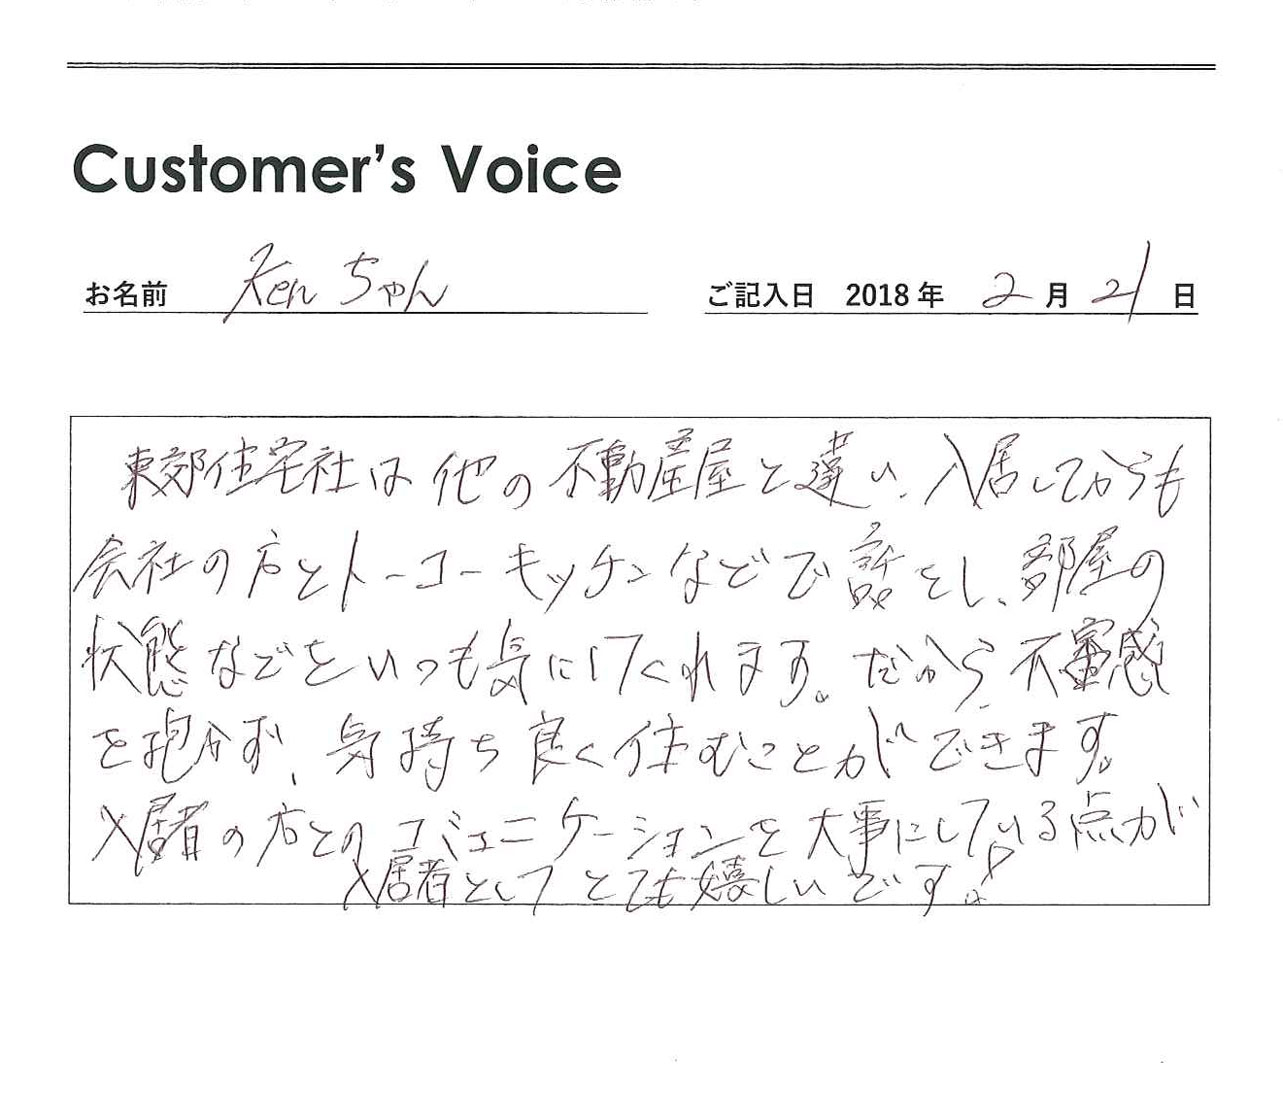 Customer's Voice
お名前 Kenちゃん ご記入日 2018年 2月 21日
東郊住宅社は他の不動産屋と違い、入居してからも
会社の方とトーコーキッチンなどで話をし、部屋の
状態などをいつも気にけてくれます。だから、不審感
を抱かず、気持ち良く住むことができます。
入居者の方とのコミュニケーションを大事にしている点が
入居者としてとても嬉しいです!